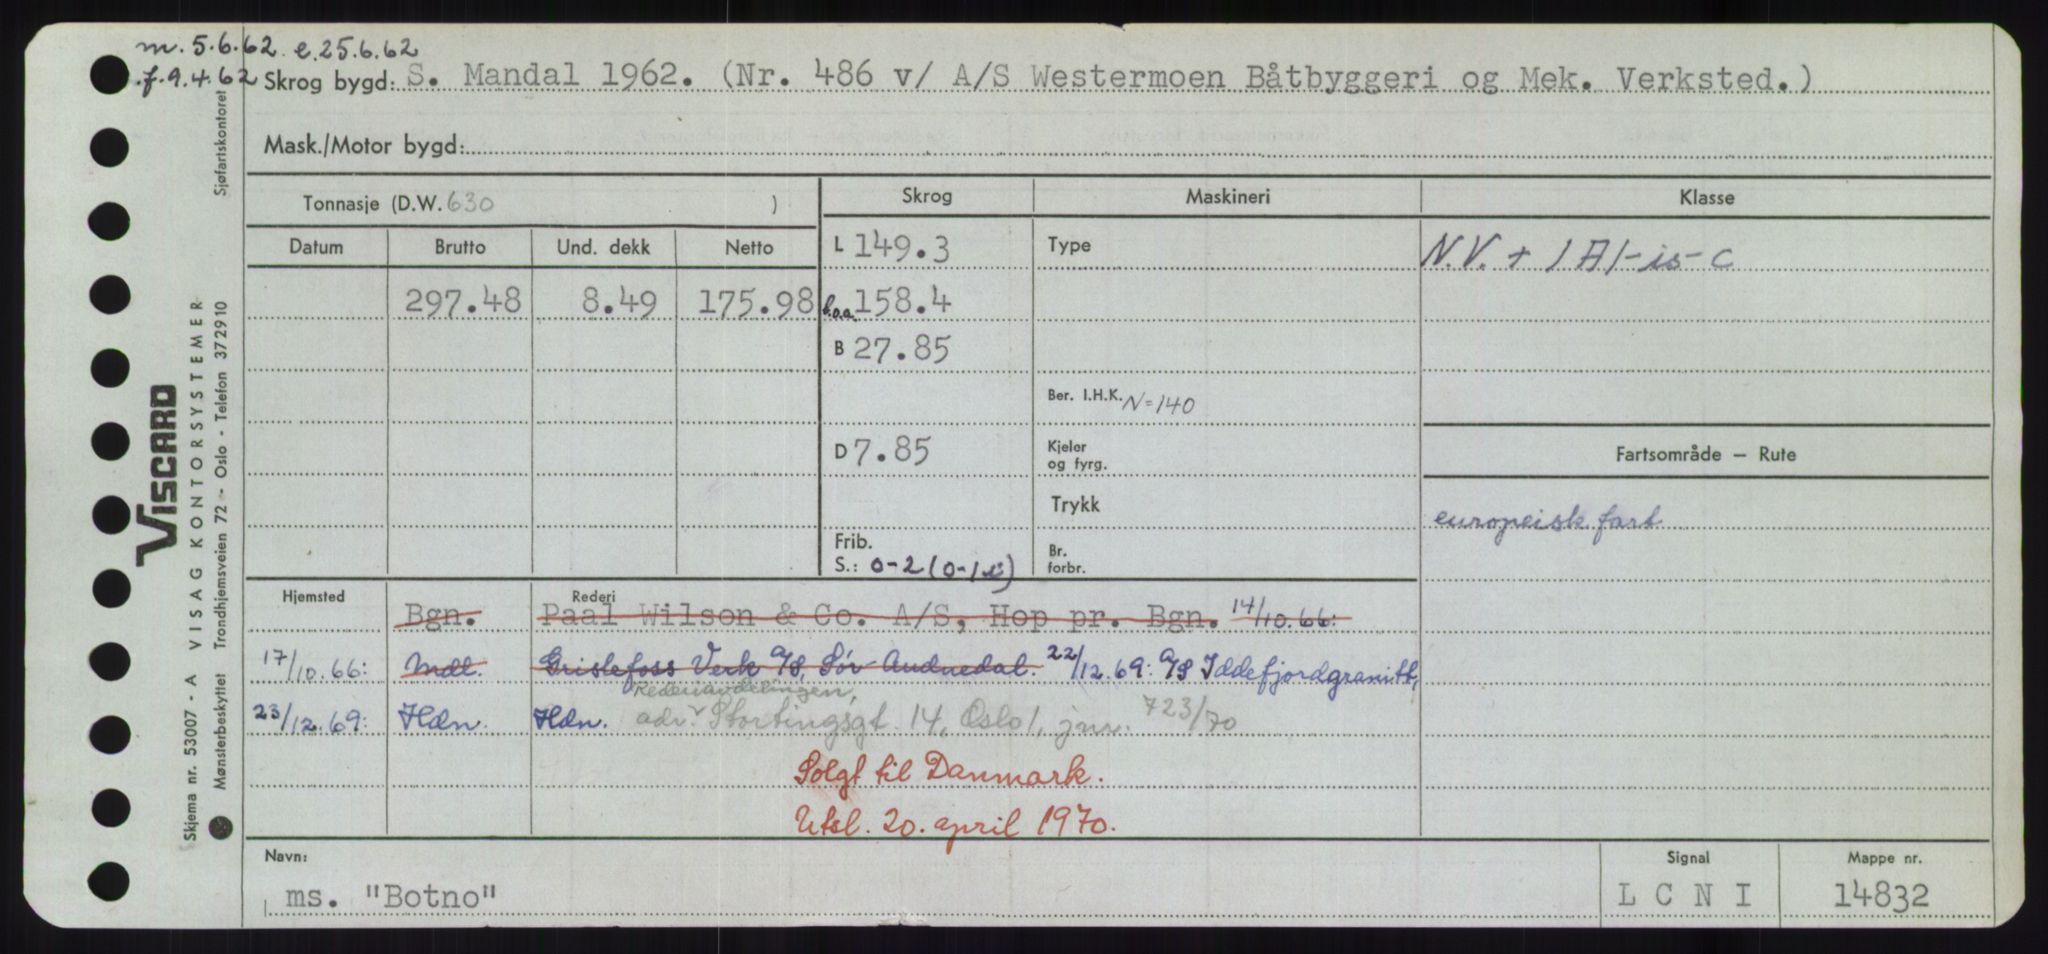 m. 5.6.62 e.25.6.62
f.9.4.62 Skrog bygd: S. Mandal 1962. (Nr. 486 v/ A/S Westermoen Båtbyggeri og Mek. Verksted.)
Mask./Motor bygd:
Tonnasje (D.W. 630 )
Skrog
Maskineri
Klasse
Datum Brutto Und. dekk Netto
L 149.3
Type
N.V. + 1A1-is-C
297.48 8.49 175.98
l.o.a. 158.4
B 27.85
Ber. I.H.K. N=140
D 7.85
Kjeler
og fyrg.
Fartsområde — Rute
Trykk
europeisk fart
Frib.
S.: 0-2 (0-1 )
Br.
forbr.
Hjemsted
Rederi
Bgn. Paal Wilson & Co. A/S, Hop pr. Bgn. 14/10.66:
17/10.66: Mdl. Grislefoss Verk A/S, Sør-Audnedal. 22/12.69: A/S Iddefjordgranitt,
Rederiavdelingen,
23/12.69: Hdn. Hdn. adr. Stortingsgt. 14, Oslo 1, jnr. 723/70
Solgt til Danmark.
Utsl. 20. april 1970.
Navn:
ms. "Botno"
Signal
L C N I
Mappe nr.
14832
Skjema nr. 53007 - A VISAG KONTORSYSTEMER
Mønsterbeskyttet Trondhjemsveien 72 - Oslo - Telefon 372910 Sjøfartskontoret
VISCARD